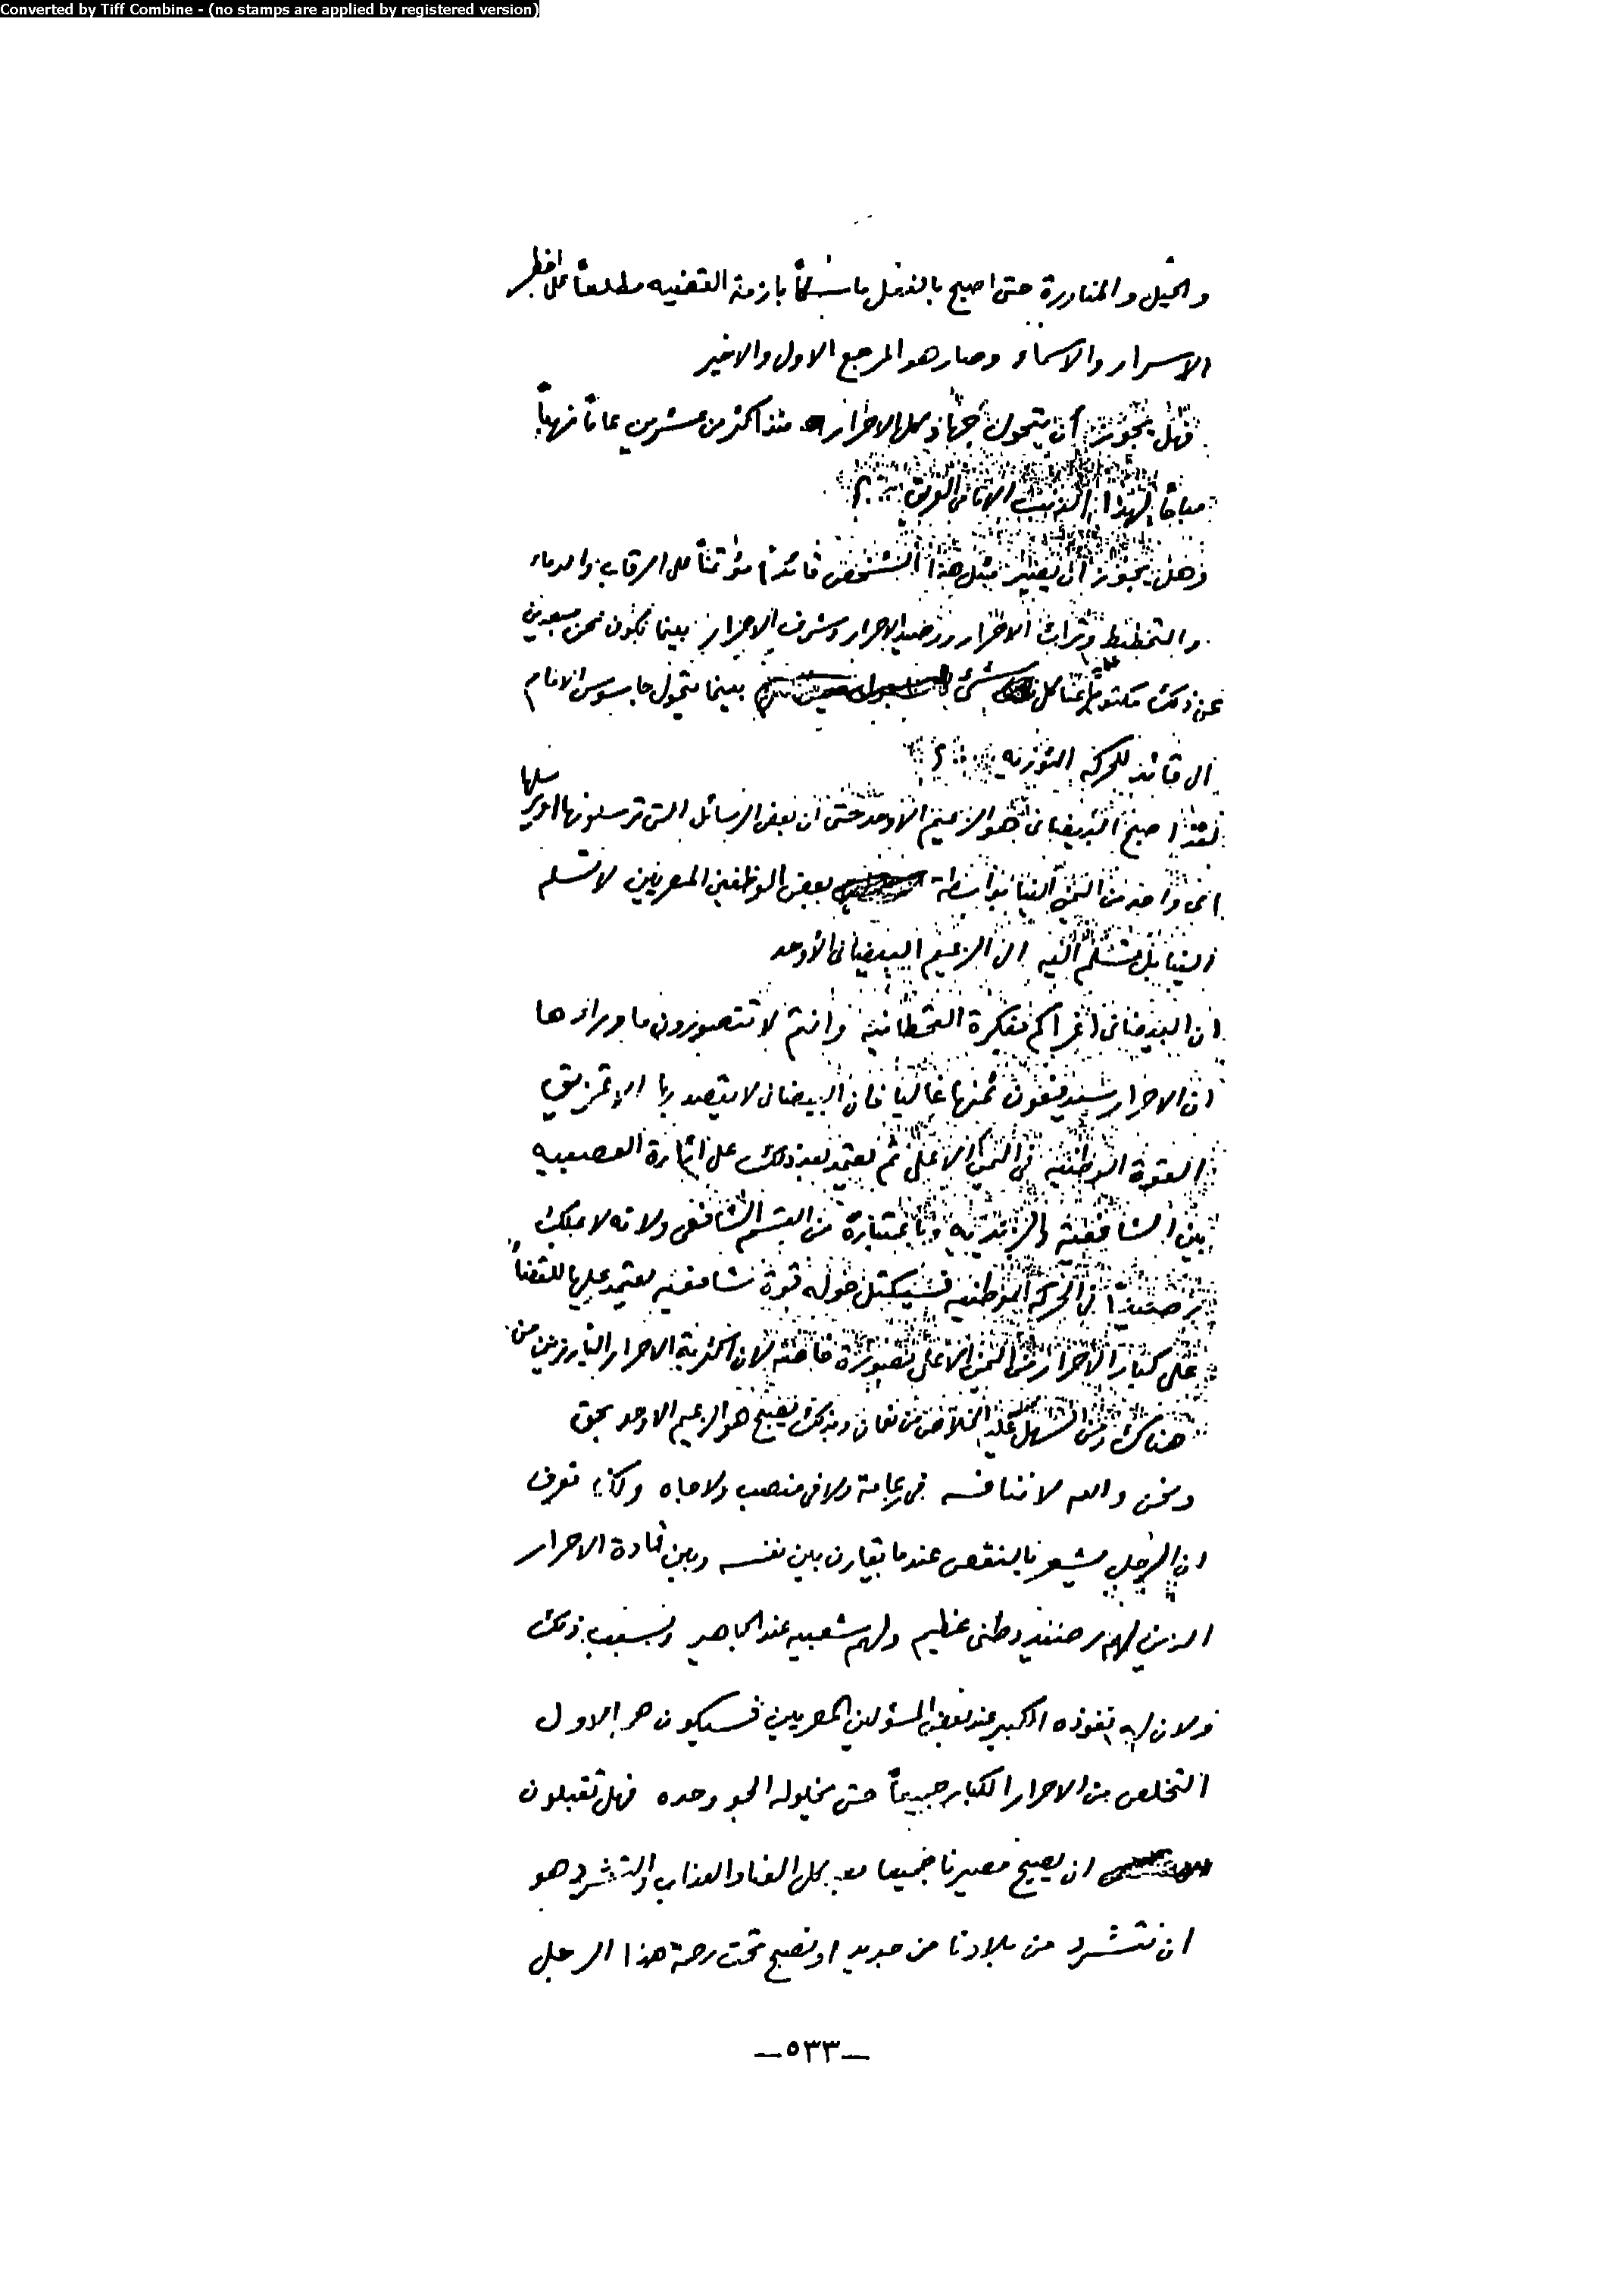 Converted by Tiff Combine - (no stamps are applied by registered version)
والحيل والمناورة حتى اصبح بالفعل ماسكاً بازمة القضيه مطلعاً على اخطر
الاسرار والاسماء وصار هو المرجع الاول والاخير
فهل يجوز أن يتحول جهاد كل الاحرار منذ اكثر من عشرين عاماً نهباً
مباحاً لهذا
وهل يجوز أن يصير مثل هذا الشخص قائداً مؤتمناً على الرقاب والدماء
والتخطيط وتراث الاحرار ورصيد الاحرار وشرف الاحرار بينما نكون نحن مبعدين
عن ذلك مكتوم عنا كل شئ بينما يتحول جاسوس الامام
الى قائد للحركه الثوريه ؟
لقد اصبح البيضاني هو الزعيم الاوحد حتى ان بعض الرسائل التي ترسلونها او يرسلها
اى واحد من اليمن الينا بواسطة بعض الموظفين المصريين لا تسلم
الينا بل تسلم اليه الى الزعيم البيضاني الأوحد
ان البيضاني اغراكم بفكرة القحطانيه وانتم لا تتصورون ما وراءها
ان الاحرار سيدفعون ثمنها غاليا فان البيضاني لا يقصد بها الا تمزيق
القوة الوطنيه في اليمن الاعلى ثم يعتمد بعد ذلك على اثارة العصبيه
بين الشافعيه والزيديه وباعتباره من القسم الشافعي ولانه لا يملك
رصيداً في الحركه الوطنيه فسيكتل حوله قوة شافعيه يعتمد عليها للقضاء
على كبار الاحرار من اليمن الاعلى بصورة خاصه لان اكثرية الاحرار البارزين من
هناك ومن السهل عليه الخلاص من نعمان وبذلك يصبح هو الزعيم الاوحد بحق
ونحن والله لا ننافسه في زعامة ولا في منصب ولا جاه ولكنا نعرف
ان الرجل يشعر بالنقص عندما يقارن بين نفسه وبين قادة الاحرار
الذين لهم رصيد وطني عظيم ولهم شعبيه عند الجماهير وبسبب ذلك
ولان له نفوذه الكبير عند بعض المسؤلين المصريين فسيكون همه الاول
التخلص من الاحرار الكبار جميعاً حتى يخلو له الجو وحده فهل تقبلون
ان يصبح مصيرنا جميعا بعد كل العناء والعذاب والتشرد هو
ان نتشرد من بلادنا من جديد او نصبح تحت رحمة هذا الرجل
—٥٣٣—